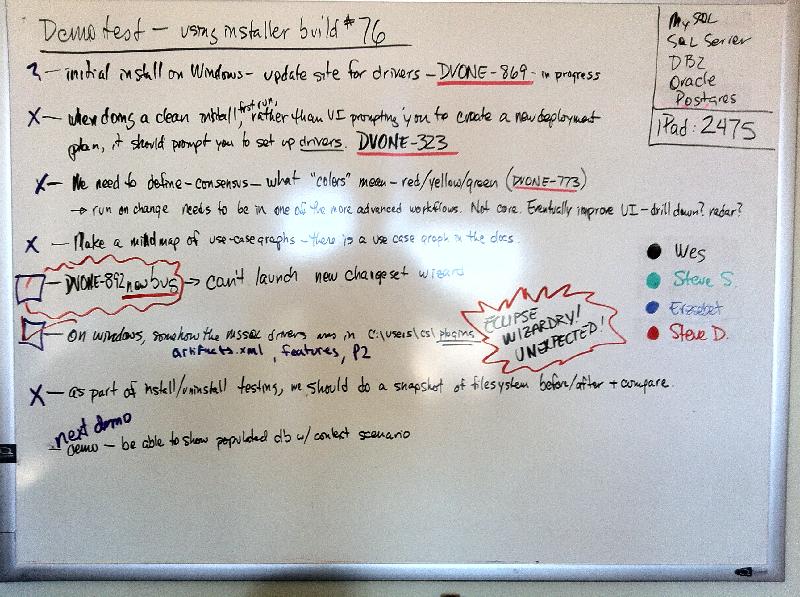 Demo test - using installer build #76
? - initial install on Windows - update site for drivers - DVONE-869 - in progress
X - when doing a clean install, first run, rather than UI prompting you to create a new deployment
plan, it should prompt you to set up drivers. DVONE-323
X - We need to define - consensus - what "colors" mean - red/yellow/green (DVONE-773)
→ run on change needs to be in one of the more advanced workflows. Not core. Eventually improve UI - drill down? radar?
X - Make a mind map of use-case graphs - there is a use case graph in the docs.
- DVONE-892 new bug → can't launch new changeset wizard
- On windows, somehow the mssql drivers was in C:\users\cs\plugins
artifacts.xml, features, P2
ECLIPSE
WIZARDRY!
UNEXPECTED!
X - as part of install/uninstall testing, we should do a snapshot of filesystem before/after + compare.
next demo
- demo - be able to show populated db w/ context scenario
MySQL
SQL Server
DB2
Oracle
Postgres
iPad: 2475
Wes
Steve S.
Erzsebet
Steve D.